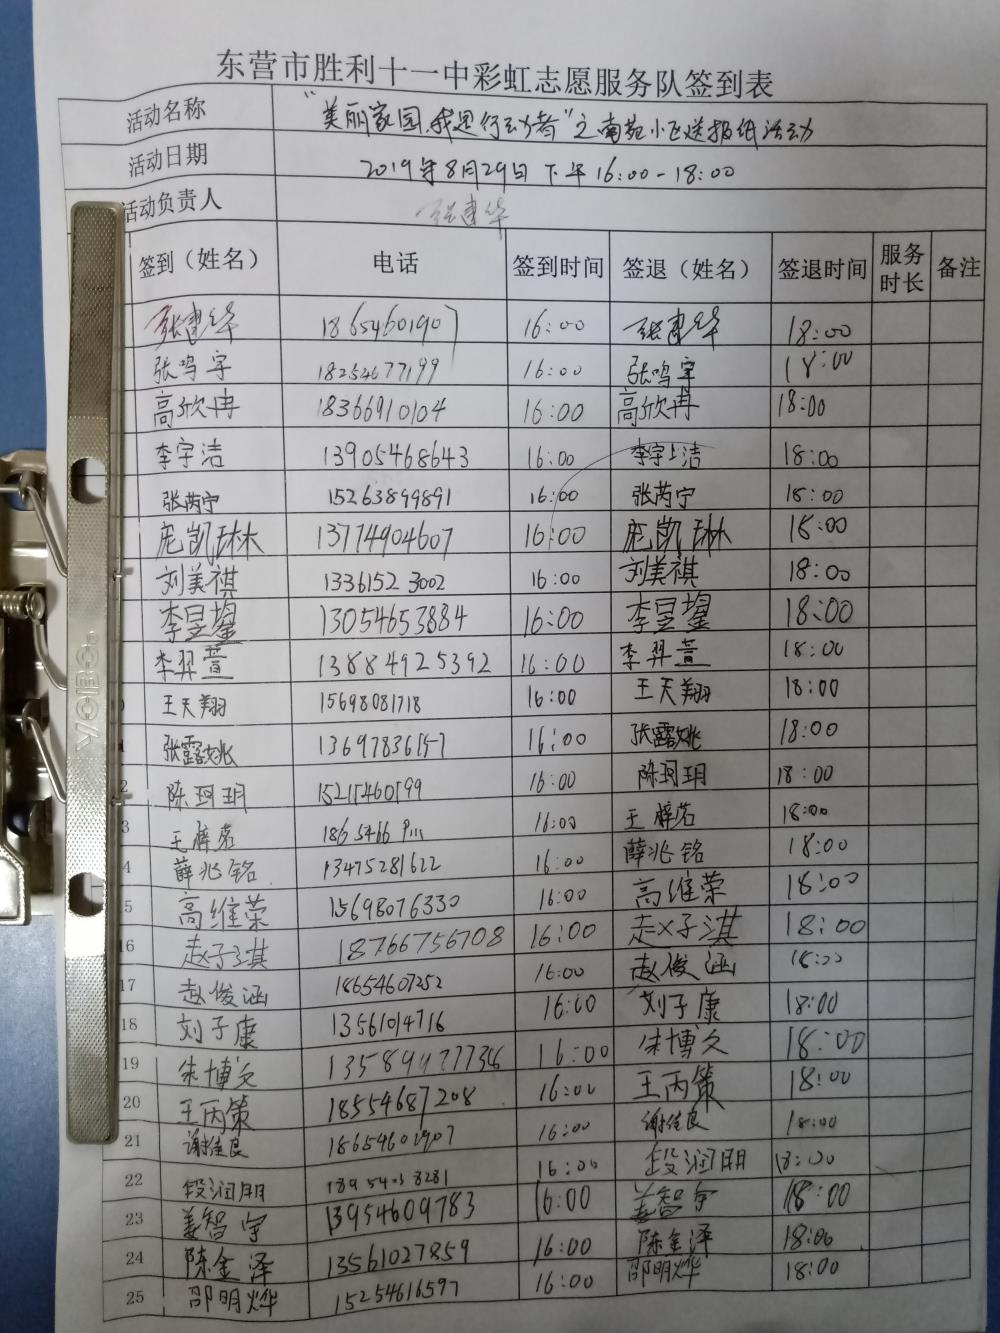 东营市胜利十一中彩虹志愿服务队签到表
活动名称 "美丽家园,我是行动者"之南苑小区送报纸活动
活动日期 2019年8月29日下午16:00-18:00
活动负责人 张建华
签到（姓名） 电话 签到时间 签退（姓名） 签退时间 服务时长 备注
张建华 18654601907 16:00 张建华 18:00
张鸣宇 18254677199 16:00 张鸣宇 18:00
高欣冉 18366910104 16:00 高欣冉 18:00
李宇洁 13905468643 16:00 李宇洁 18:00
张芮宁 15263899891 16:00 张芮宁 18:00
庞凯琳 13774904607 16:00 庞凯琳 18:00
刘美祺 13361523002 16:00 刘美祺 18:00
李昱鋆 13054653884 16:00 李昱鋆 18:00
李羿萱 13884925392 16:00 李羿萱 18:00
王天翔 15698081718 16:00 王天翔 18:00
张露姚 13697836157 16:00 张露姚 18:00
2 陈珂玥 15215460599 16:00 陈珂玥 18:00
3 王梓茗 16:00 王梓茗 18:00
4 薛兆铭 13475281622 16:00 薛兆铭 18:00
5 高维荣 15698076330 16:00 高维荣 18:00
16 赵子淇 18766756708 16:00 赵子淇 18:00
17 赵俊涵 18654607252 16:00 赵俊涵 18:00
18 刘子康 13561014716 16:00 刘子康 18:00
19 朱博文 13589977736 16:00 朱博文 18:00
20 王丙策 18554687208 16:00 王丙策 18:00
21 谢佳良 18654601907 16:00 谢佳良 18:00
22 段润明 16:00 段润明 18:00
23 姜智宇 13954609783 16:00 姜智宇 18:00
24 陈金泽 13561027859 16:00 陈金泽 18:00
25 邵明烨 15254616597 16:00 邵明烨 18:00